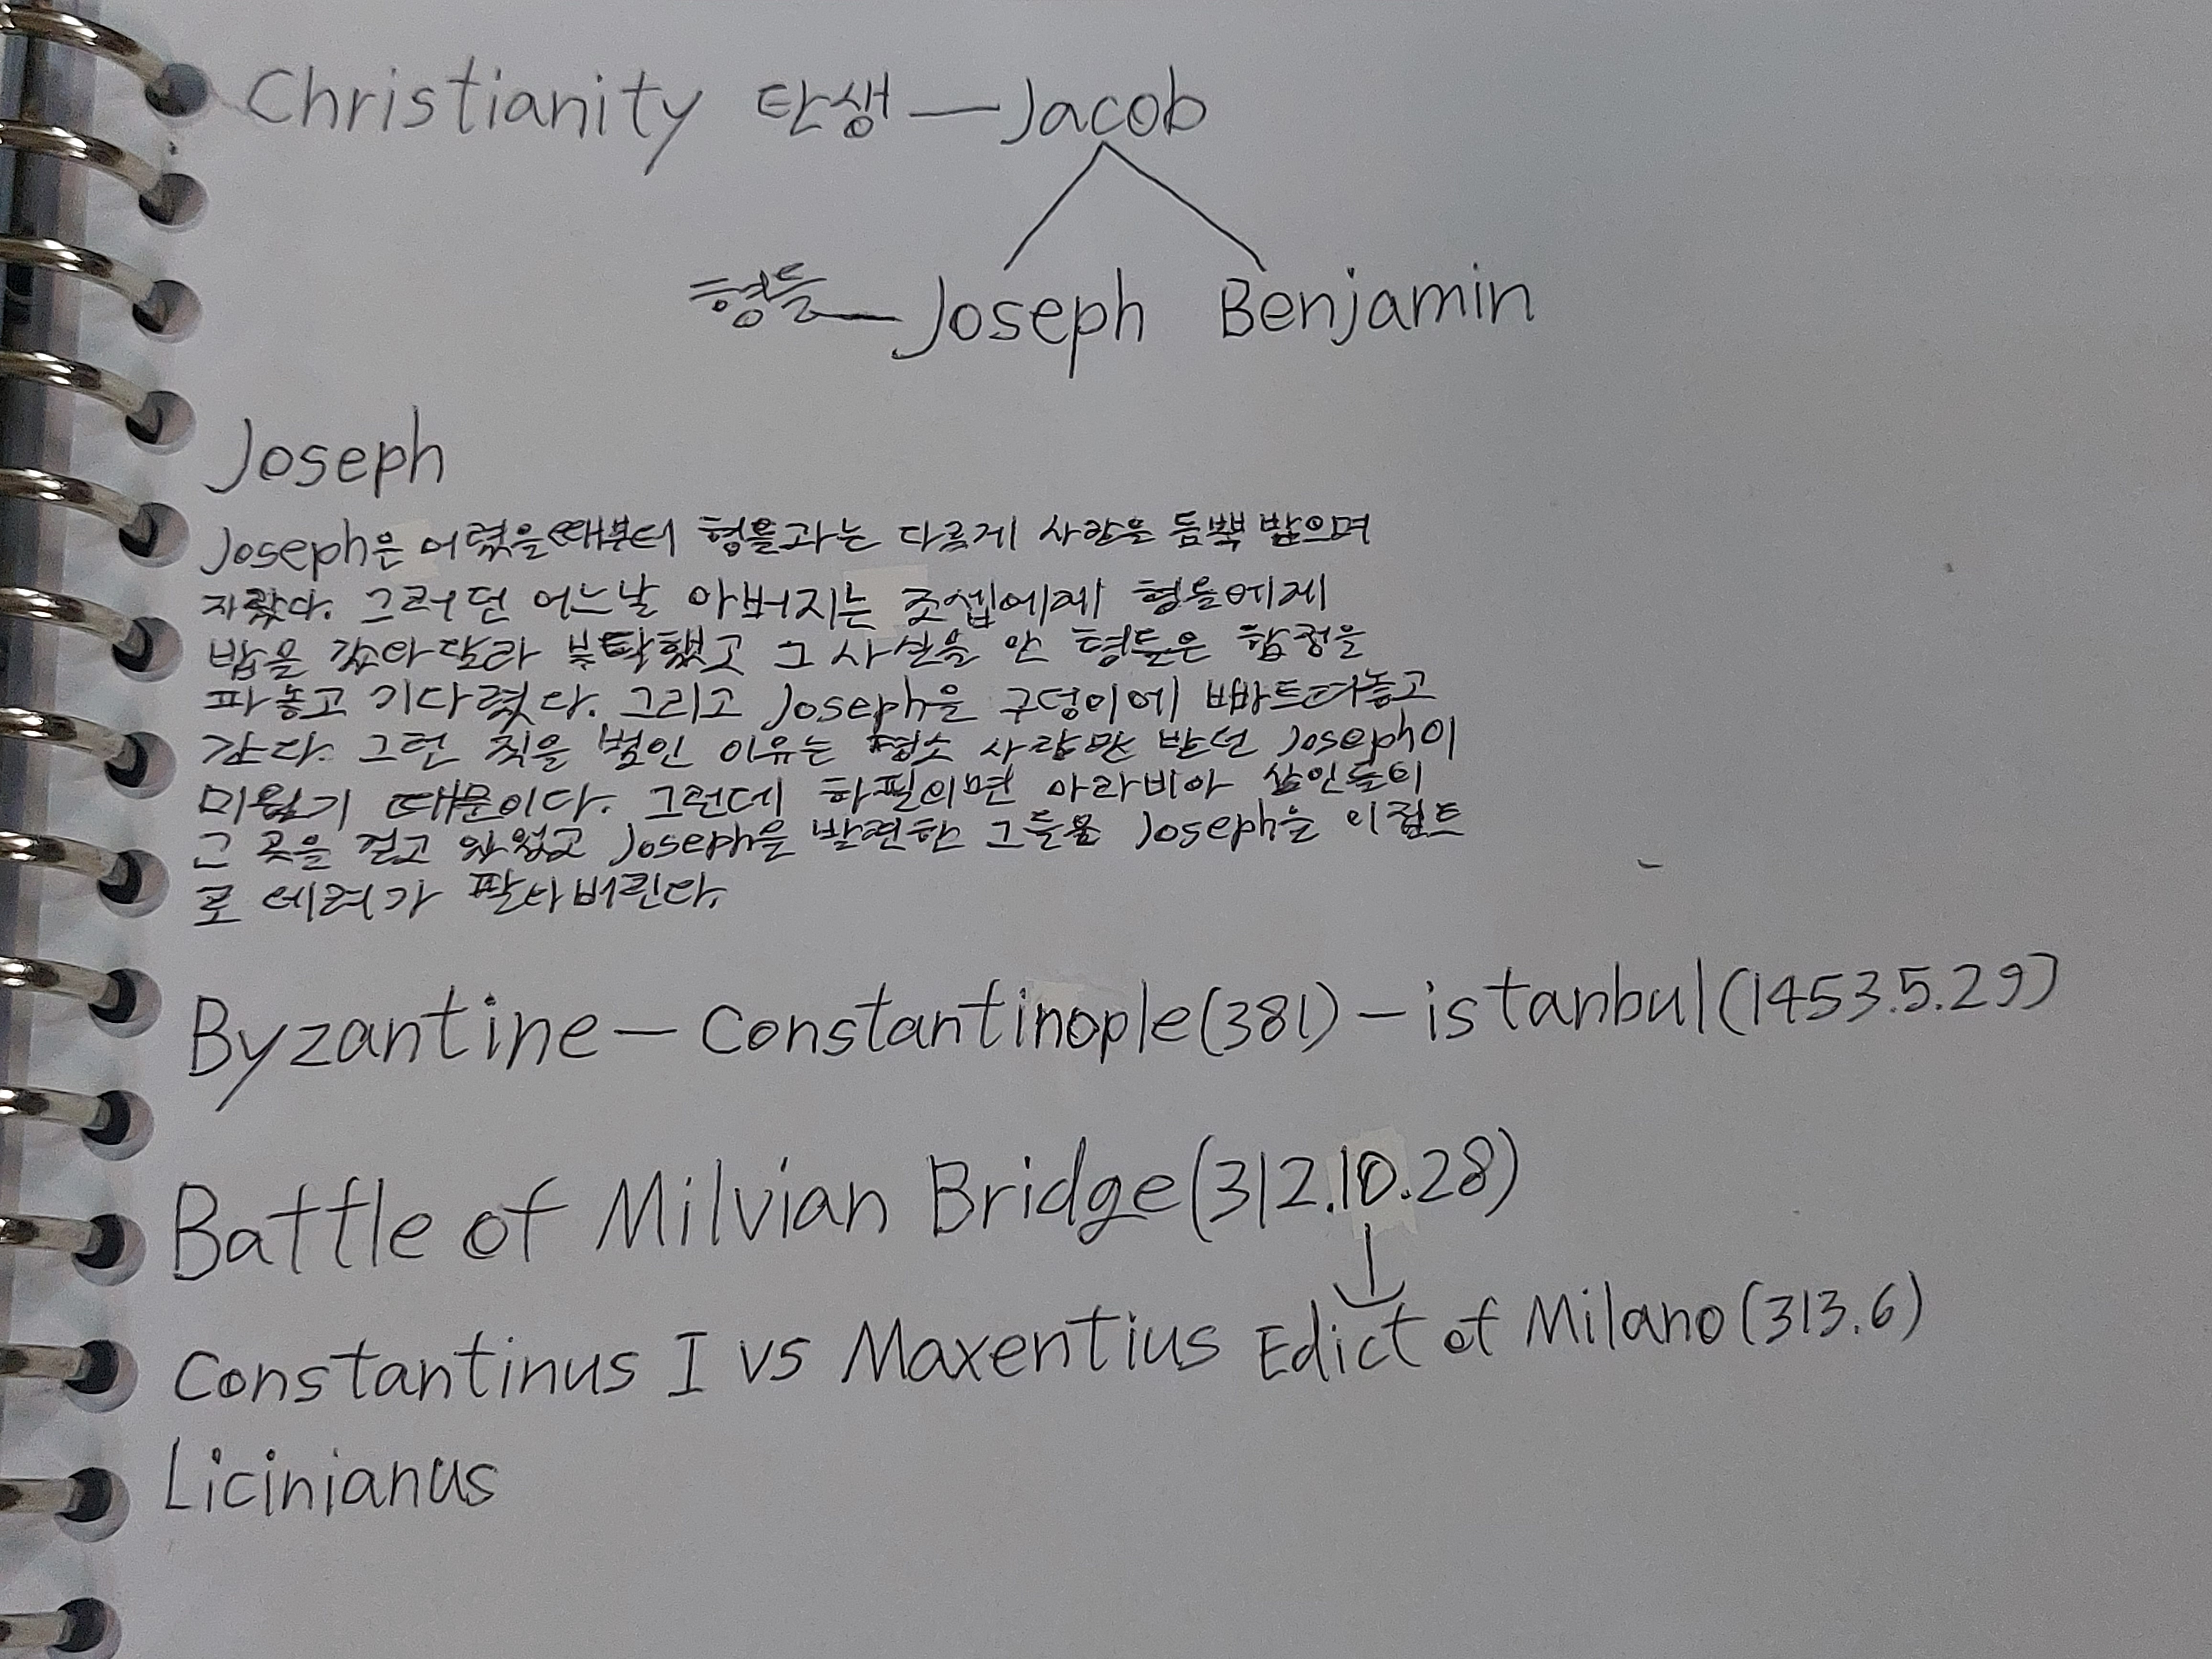 Christianity 탄생 — Jacob
형들 — Joseph Benjamin
Joseph
Joseph은 어렸을때부터 형들과는 다르게 사랑을 듬뿍 받으며
자랐다. 그러던 어느날 아버지는 조셉에게 형들에게
밥을 갖아달라 부탁했고 그 사실을 안 형들은 함정을
파놓고 기다렸다. 그리고 Joseph을 구덩이에 빠트려놓고
간다. 그런 짓을 벌인 이유는 평소 사랑만 받던 Joseph이
미웠기 때문이다. 그런데 하필이면 아라비아 상인들이
그 곳을 걷고 있었고 Joseph을 발견한 그들은 Joseph을 이집트
로 데려가 팔아버린다.
Byzantine — Constantinople(381) — istanbul(1453.5.29)
Battle of Milvian Bridge(312.10.28)
Constantinus I vs Maxentius Edict of Milano(313.6)
Licinianus